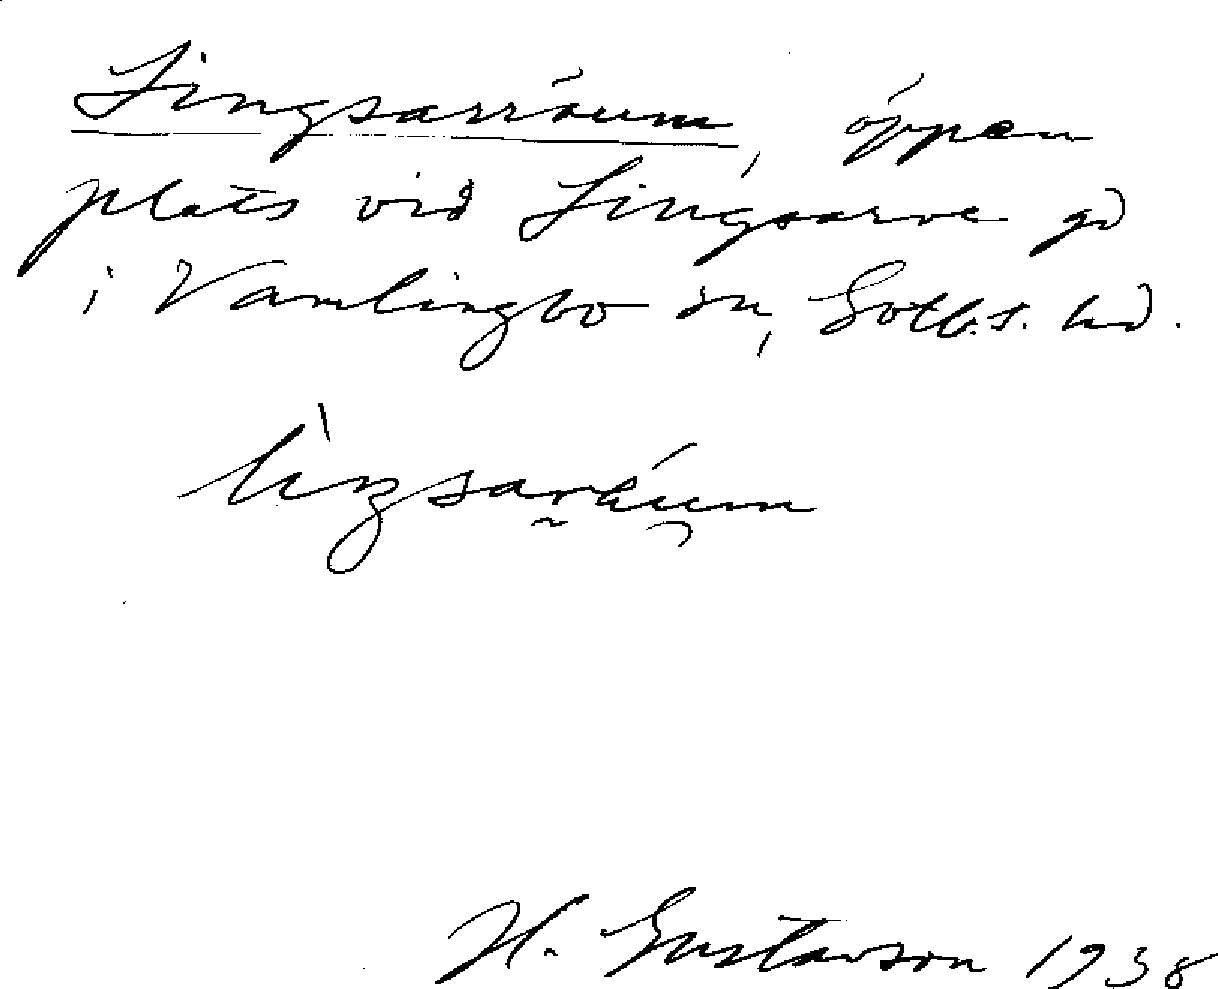 Lingsarräum, öppen
plats vid Lingsarve gd
i Vamlingbo sn, Gotl.s. hd.
H. Gustavson 1938